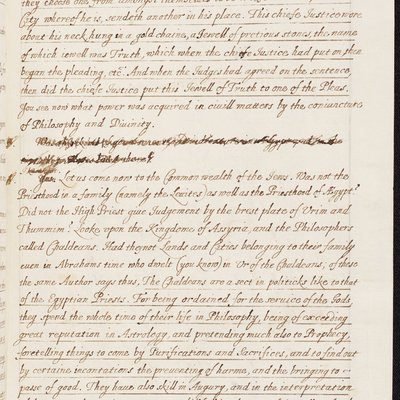 they choose one from amongst themselves
City whereof he is, sendeth another in his place. This chiefe Justice wore
about his neck hung in a gold chaine, a Jewell of pretious stones, the name
of which iewell was Truth, which when the chiefe Justice had put on then
began the pleading, etc. And when the Judges had agreed on the sentence,
then did the chiefe Justice put this Jewell of Truth to one of the Pleas.
You see now what power was acquired in civill matters by the coniuncture
of Philosophy and Divinity.
Let us come now to the Common wealth of the Jews. Was not the
Priesthood in a family (namely the Levites) as well as the Priesthood of Ægypt?
Did not the High Priest giue Judgement by the brest plate of Urim and
Thummim? Looke upon the Kingdome of Assyria, and the Philosophers
called Chaldeans. Had they not Lands and Cities belonging to their family
even in Abrahams time who dwelt (you know) in Ur of the Chaldeans; of these
the same Author says thus, The Chaldeans are a sect in politicks like to that
of the Egyptian Priests. For being ordained for the service of the Gods,
they spend the whole time of their life in Philosophy, being of exceeding
great reputation in Astrology, and pretending much also to Prophecy,
foretelling things to come by Purifications and Sacrifices, and to find out
by certaine incantations the preventing of harme, and the bringing to
passe of good. They haue also skill in Augury, and in the interpretation